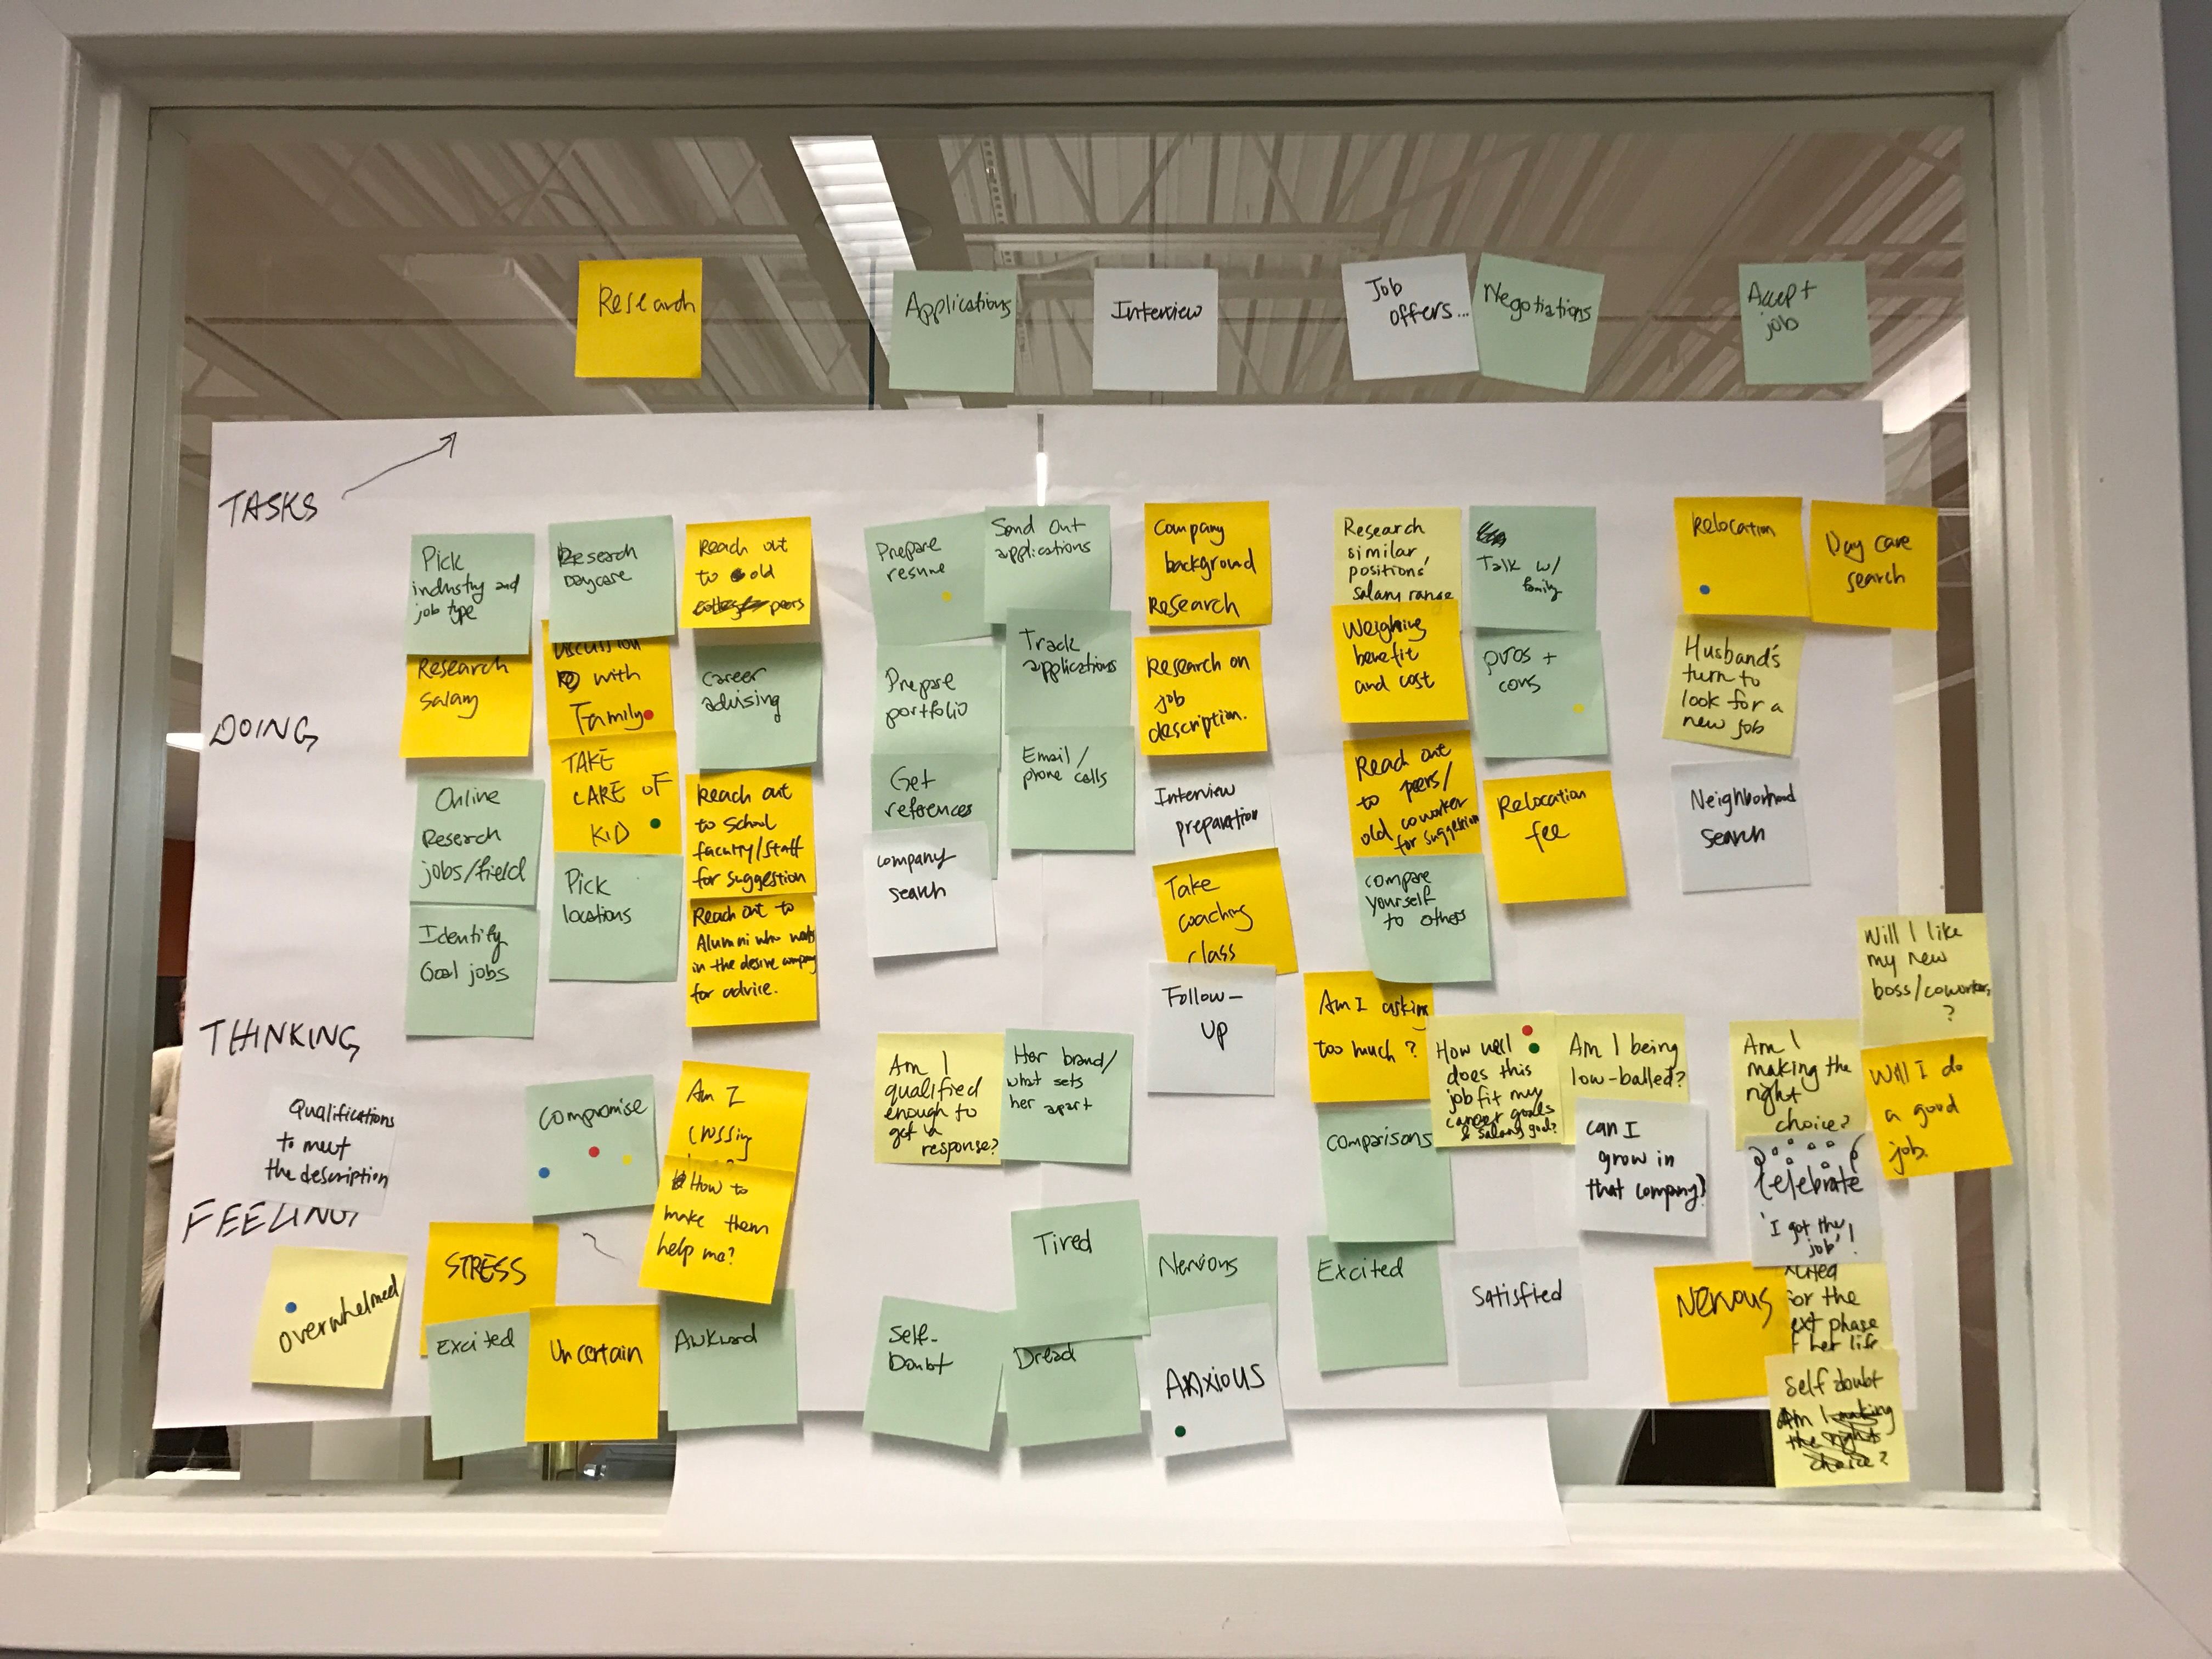 Research
Applications
Interview
Job
offers...
Negotiations
Accept
job
TASKS
DOING
THINKING
FEELING
Pick
industry and
job type
Research
Salary
Online
Research
jobs/field
Identify
Goal jobs
Research
Daycare
Discussion
with
Family
TAKE
CARE OF
KID
Pick
locations
Reach out
to old
peers
Career
advising
Reach out
to School
faculty/staff
for suggestion
Reach out to
Alumni who works
in the desire company
for advice.
Prepare
resume
Prepare
portfolio
Get
references
company
search
Send Out
applications
Track
applications
Email/
phone calls
Company
background
Research
Research on
job
description.
Interview
preparation
Take
coaching
class
Follow-
up
Research
similar
positions'
salary range
Weighing
benefit
and cost
Reach out
to peers/
old coworker
for suggestion
compare
yourself
to others
Talk w/
family
pros +
cons
Relocation
fee
Relocation
Day care
search
Husband's
turn to
look for a
new job
Neighborhood
search
Qualifications
to meet
the description
Compromise
Am I
crossing
How to
make them
help me?
Am I
qualified
enough to
get a
response?
Her brand/
what sets
her apart
Am I asking
too much?
How well
does this
job fit my
career goals
& salary goal?
Am I being
low-balled?
Comparisons
can I
grow in
that company?
Will I like
my new
boss/coworkers
?
Am I
making the
right
choice?
Will I do
a good
job.
Celebrate
'I got the
job'!
overwhelmed
STRESS
Excited
Uncertain
Awkward
Self-
Doubt
Tired
Dread
Nervous
ANXIOUS
Excited
Satisfied
Nervous
xcited
for the
ext phase
f her life
Self doubt
Am I making
the right
choice?